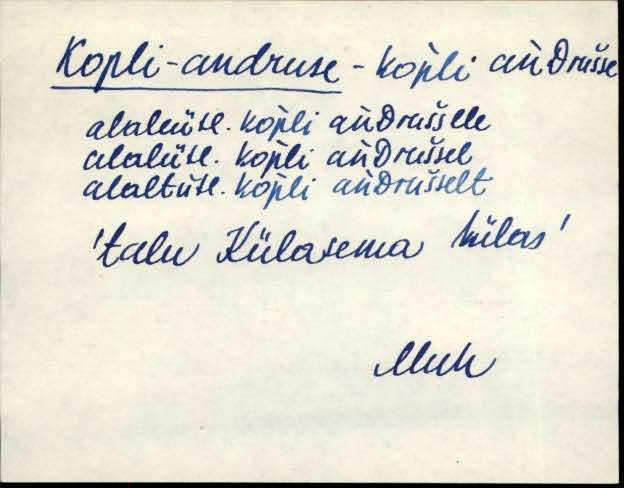 Kopli-andruse - kop̀li ań̀Drušse
alaleütl. kop̀li ań̀Drušselle
alalütl. kop̀li ań̀Drušsel
alaltütl. kop̀li ań̀Drušselt
'talu Külasema külas'
Muh